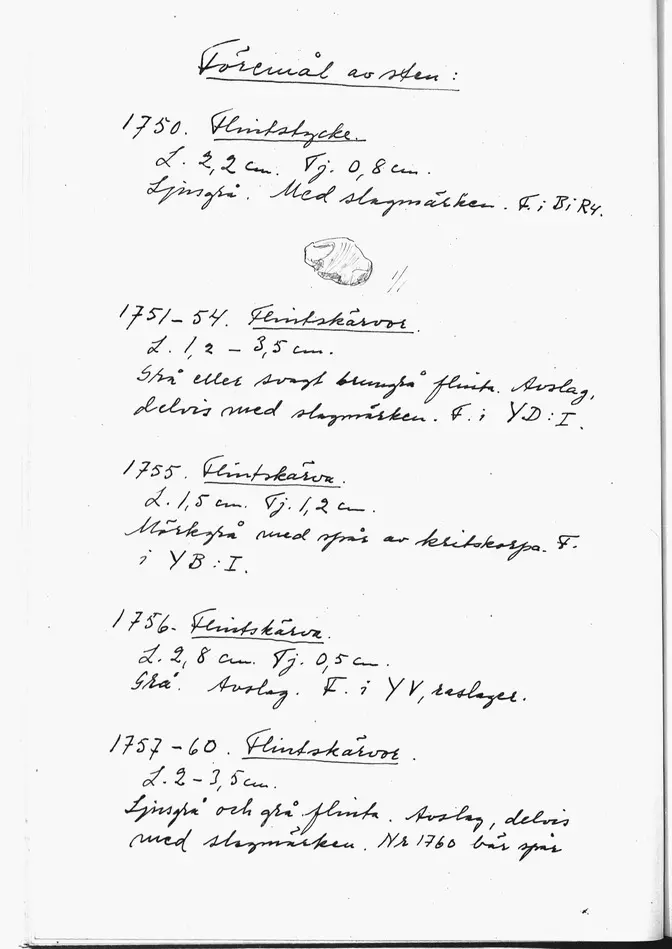 Föremål av sten:
1750. Flintstycke.
L. 2,2 cm. Tj. 0,8 cm.
Ljusgrå. Med slagmärken. F. i BiR4.
1/1
1751-54. Flintskärvor.
L. 1,2 - 3,5 cm.
Grå eller svagt brungrå flinta. Avslag,
delvis med slagmärken. F. i YD:I.
1755. Flintskärva.
L. 1,5 cm. Tj. 1,2 cm.
Mörkgrå med spår av kritskorpa. F.
i YB:I.
1756. Flintskärva.
L. 2,8 cm. Tj. 0,5 cm.
Grå. Avslag. F. i YV, raslager.
1757-60. Flintskärvor.
L. 2-3,5 cm.
Ljusgrå och grå flinta. Avslag, delvis
med slagmärken. Nr 1760 bär spår